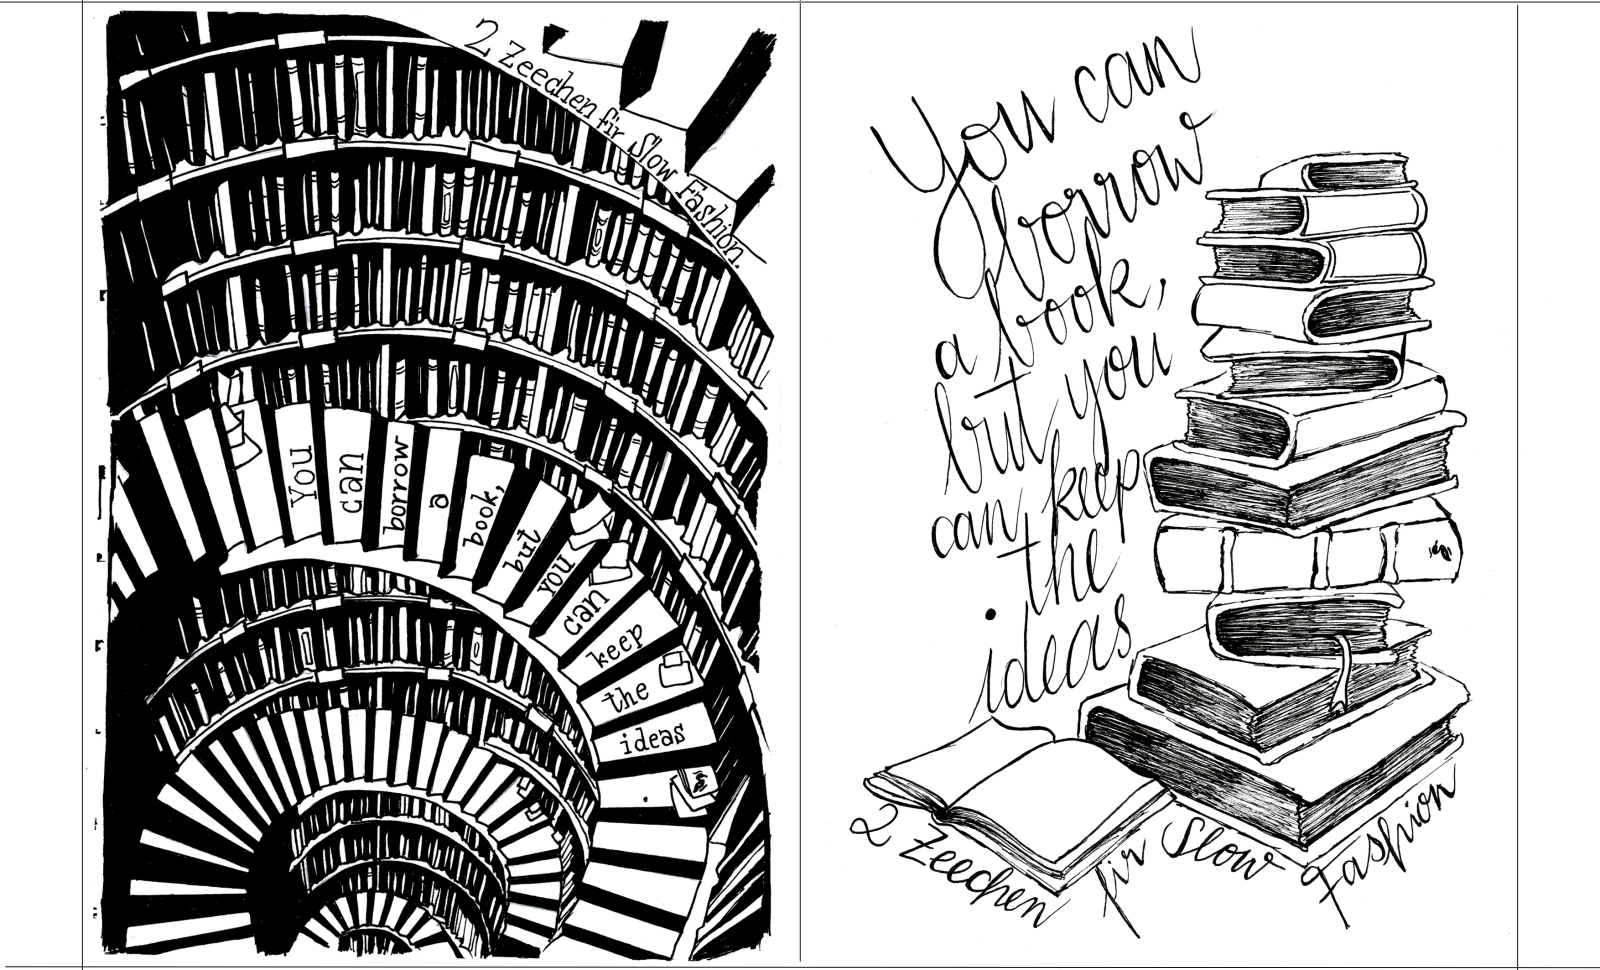 2 Zeechen fir Slow Fashion.
You
can
borrow
a
book,
but
you
can
keep
the
ideas
.
You can
borrow
a book,
but you
can keep
the
ideas
2 Zeechen fir Slow Fashion